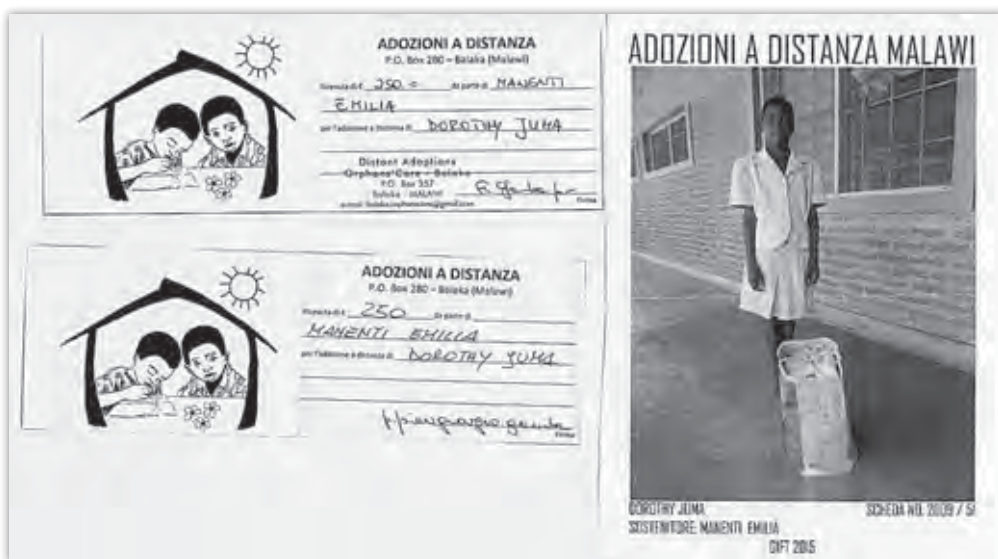 ADOZIONI A DISTANZA
P.O. Box 280 – Balaka (Malawi)
Ricevuta di € 250.= da parte di MANENTI
EMILIA
per l'adozione a distanza di DOROTHY JUMA
Distant Adoptions
Orphans' Care - Balaka
P.O. Box 357
Balaka - MALAWI
Firma
ADOZIONI A DISTANZA
P.O. Box 280 – Balaka (Malawi)
Ricevuta di € 250 da parte di
MANENTI EMILIA
per l'adozione a distanza di DOROTHY JUMA
Firma
ADOZIONI A DISTANZA MALAWI
DOROTHY JUMA SCHEDA NO. 2009 / 51
SOSTENITORE: MANENTI EMILIA
GIFT 2015